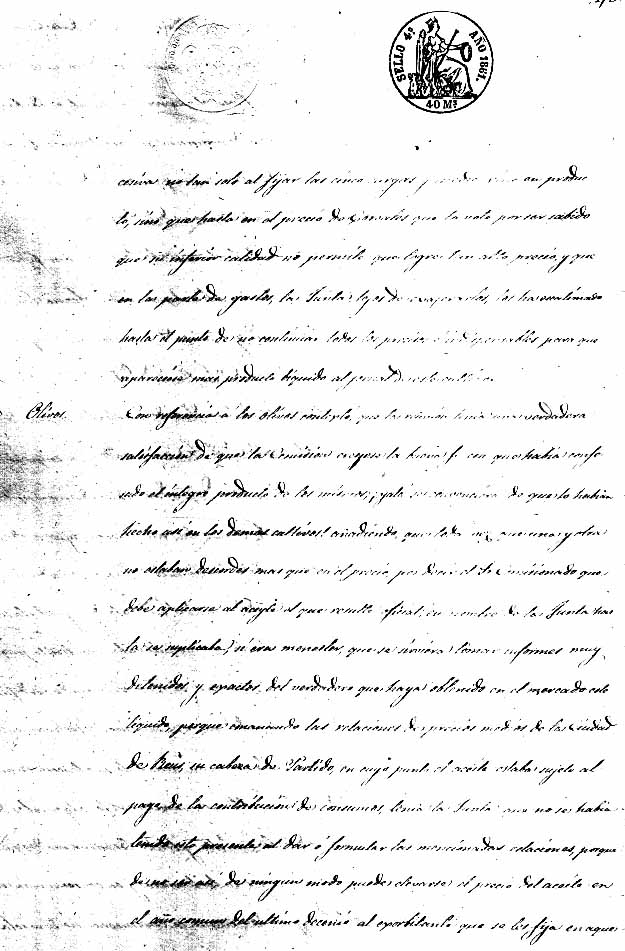 SELLO 4º AÑO 1861.
40 Ms.
cesiva no tan solo al fijar las cinco cargas en produc
to, sino que hasta en el precio de que la vale por ser sabido
que su inferior calidad no permite que logre un alto precio, y que
en la parte de gastos, la Junta lejos de exagerarlos, los ha
hasta el punto de no continuar todos los precisos é indispensables para que
apareciera mas producto líquido al jornal de este cultivo.
Olivos.
Con referencia á los olivos contestó, que la reunion tenia una verdadera
satisfaccion de que la Comision creyera la buena fé con que habia confe
sado el íntegro producto de los mismos, ojalá se convenciera de que lo habian
hecho asi en los demas cultivos! añadiendo, que toda vez que una y otra
no estaban desacordes mas que en el precio, por decir el Sr. Comisionado que
debe aplicarse al aceyte el que resulta oficial, en nombre de la Junta has
ta se suplicaba, si era menester, que se sirviera tomar informes muy
detenidos y exactos, del verdadero que haya obtenido en el mercado este
líquido, porque emanando las relaciones de precios medios de la Ciudad
de Reus, su cabeza de Partido, en cuyo punto el aceite estaba sujeto al
pago de la contribucion de consumos, temia la Junta que no se habia
tenido esto presente al dar ó formular las mencionadas relaciones, porque
de no ser asi, de ningun modo puede elevarse el precio del aceite en
el año comun del último decenio al exorbitante que se les fija en aque